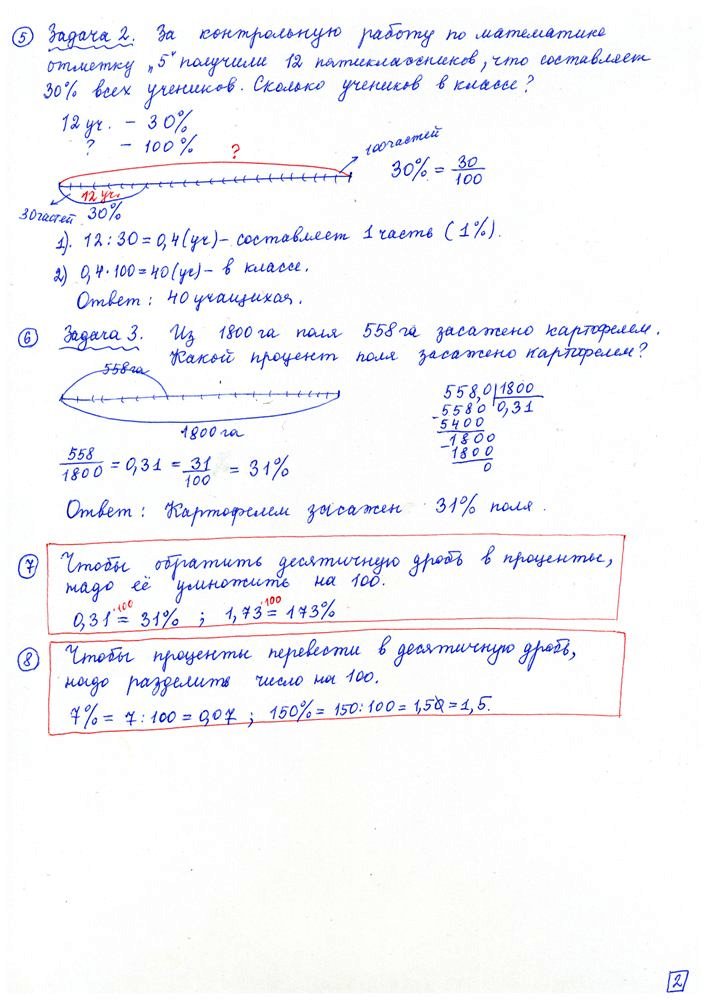 5 Задача 2. За контрольную работу по математике
отметку „5" получили 12 пятиклассников, что составляет
30% всех учеников. Сколько учеников в классе?
12 уч. – 30%
? – 100%
?
100 частей
30% = 30/100
12 уч.
30 частей 30%
1). 12 : 30 = 0,4 (уч) – составляет 1 часть (1%).
2) 0,4 · 100 = 40 (уч) – в классе.
Ответ: 40 учащихся.
6 Задача 3. Из 1800 га поля 558 га засажено картофелем.
Какой процент поля засажено картофелем?
558 га
1800 га
558,0 | 1800
- 5580 | 0,31
5400
- 1800
1800
0
558/1800 = 0,31 = 31/100 = 31%
Ответ: Картофелем засажен 31% поля.
7 Чтобы обратить десятичную дробь в проценты,
надо её умножить на 100.
·100 ·100
0,31 = 31% ; 1,73 = 173%
8 Чтобы проценты перевести в десятичную дробь,
надо разделить число на 100.
7% = 7 : 100 = 0,07 ; 150% = 150 : 100 = 1,50 = 1,5.
2